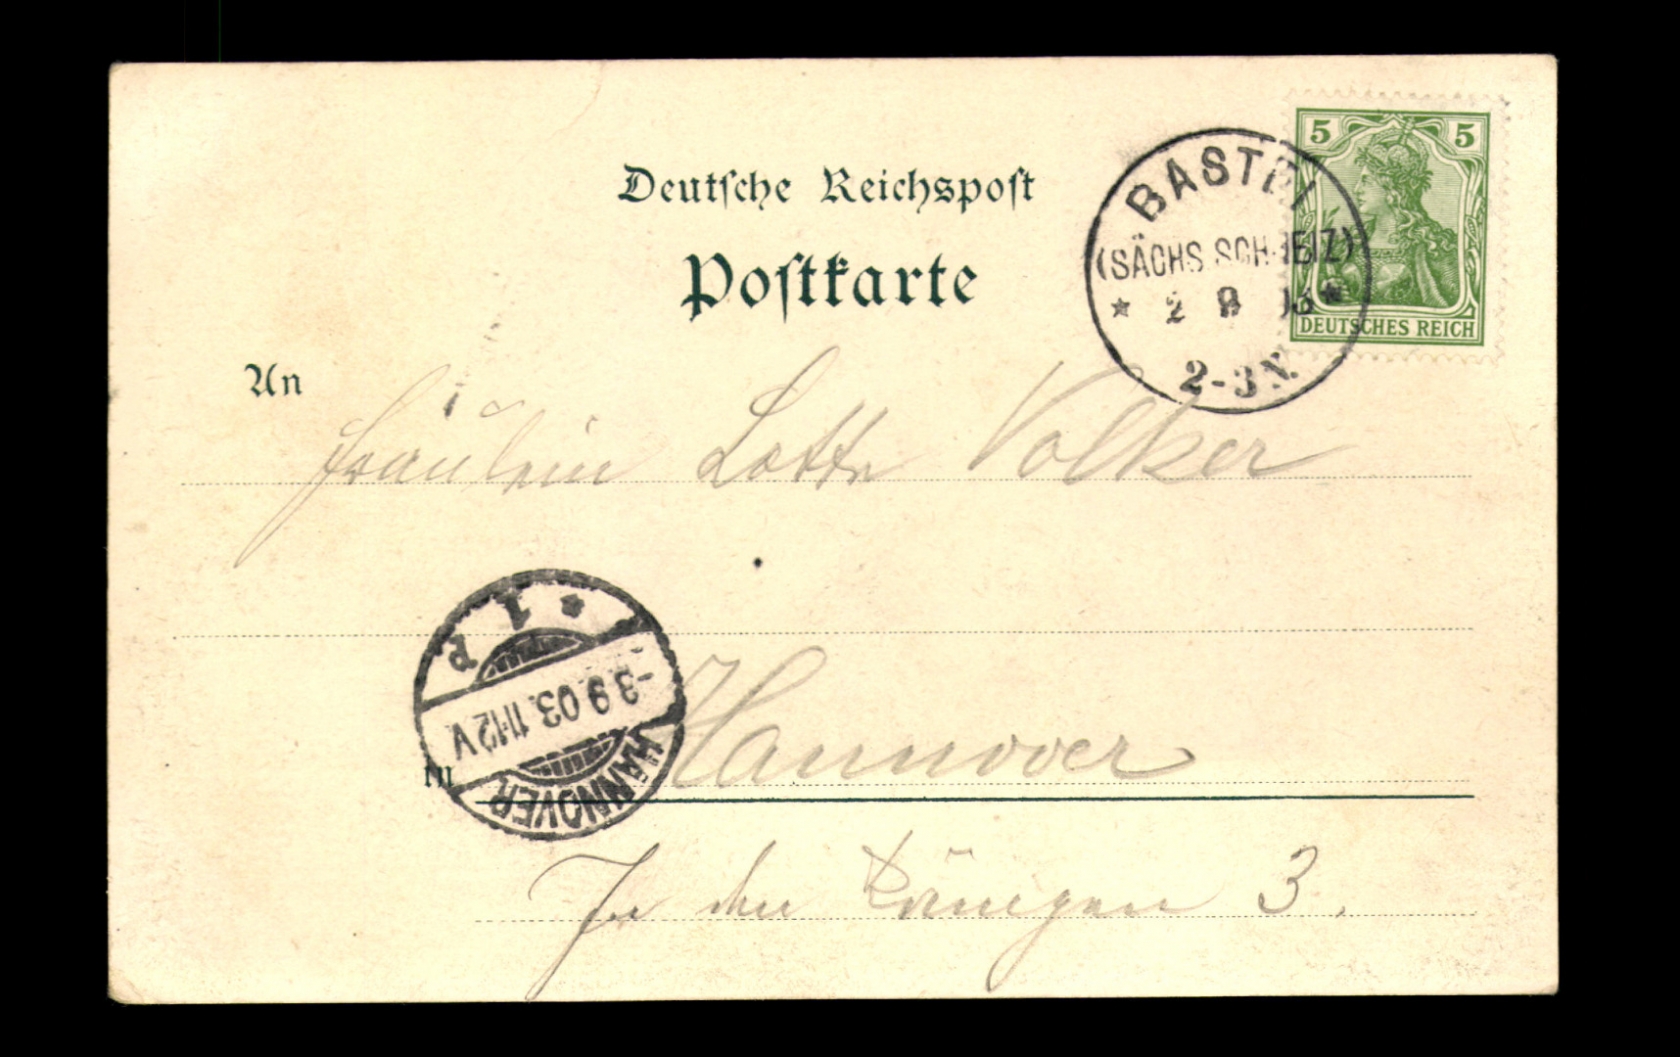 Deutsche Reichspost
Postkarte
5 5
DEUTSCHES REICH
BASTEI
(SÄCHS. SCHWEIZ)
* 2 9 03 *
2-3 N.
An
Fräulein Lotte Volker
* 1 P
-3.9.03. 11-12 V
HANNOVER
in Hannover
In den 3.